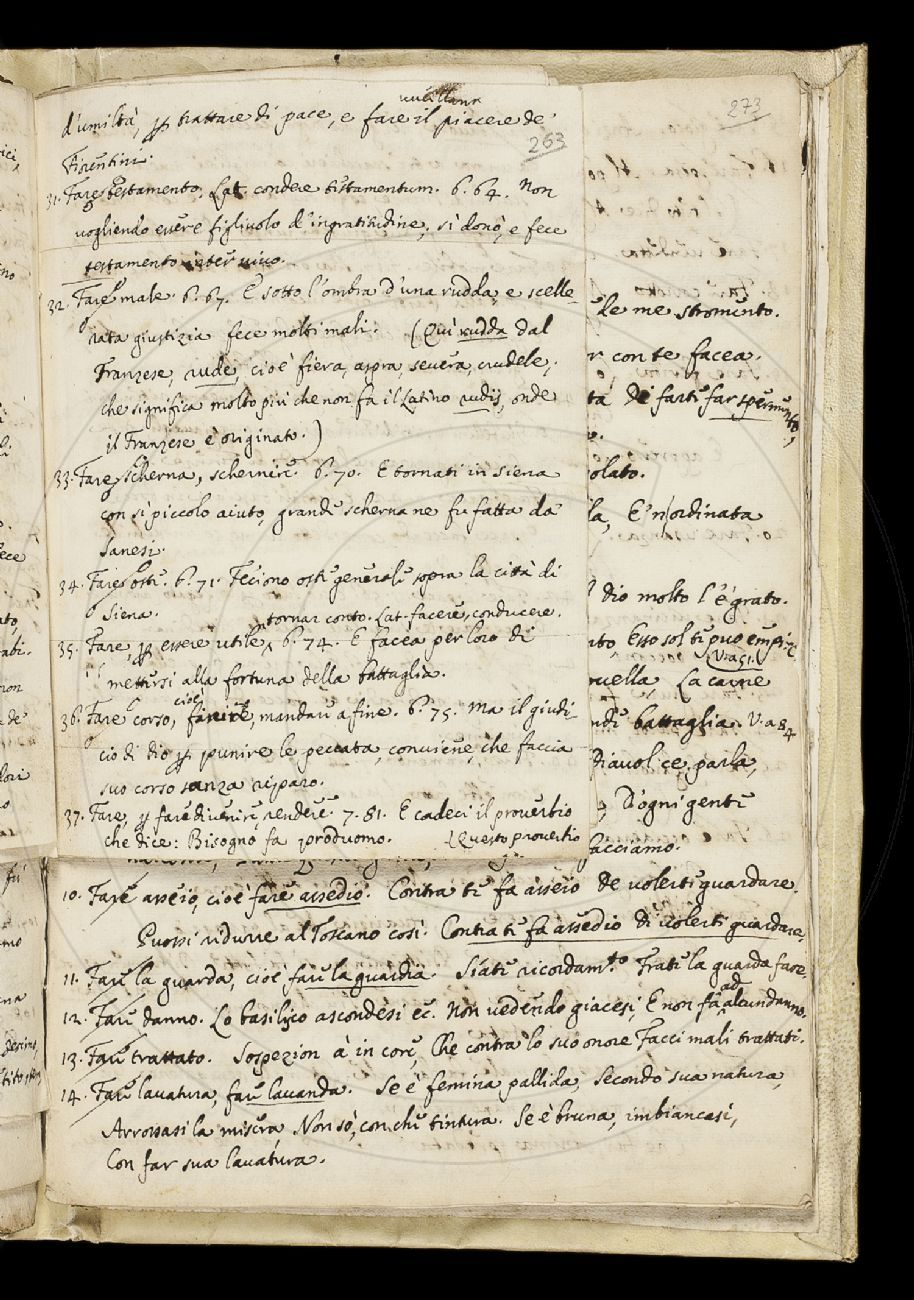 273
263
d'umiltà, p trattare di pace, e fare il piacere de'
Fiorentini.
31. Fare testamento. Lat. condere testamentum. 6. 64. Non
vogliendo essere figliuolo d'ingratitudine, si donò, e fece
testamento inter vivo.
32. Fare male. 6. 67. E sotto l'ombra d'una rudda, e scelle
rata giustizia fece molti mali. (Quì rudda dal
Franzese, rude, cioè fiera, aspra, severa, crudele,
che significa molto più che non fa il Latino rudis, onde
il Franzese è originato.)
33. Fare scherna, schernire. 6. 70. E tornati in Siena
con sì piccolo aiuto, grande scherna ne fu fatta da
Sanesi.
34. Fare oste. 6. 71. Feciono oste generale sopra la città di
Siena.
tornar conto. Lat. facere, conducere.
35. Fare, p essere utile, 6. 74. E facea per loro di
mettersi alla fortuna della battaglia.
cioè
36. Fare corso, finire, mandare a fine. 6. 75. Ma il giudi-
cio di dio p punire le peccata, conviene, che faccia
suo corso sanza riparo.
37. Fare, p fare divenire, rendere. 7. 81. E cadeci il proverbio
che dice: Bisogno fa produomo. Questo proverbio
le me stromento.
r con te facea.
ta di farti far spermento,
olato.
la, E' n'ordinata
dio molto l'è grato.
nto, Esso sol ti può empire
V. a 51.
uella, La carne
ndi battaglia. V. a 84
Diavol ce parla,
, D'ogni gente
facciamo.
10. Fare asseio, cioè fare assedio. Contra te fa asseio de volerti guardare.
Puossi ridurre al Toscano così. Contra te fa assedio di volerti guardare.
11. Fare la guarda, cioè fare la guardia. Siate ricordam.to Frate la guarda fare.
12. Fare danno. Lo basilico ascondesi ec. Non vedendo giacesi, E non fa ad alcun danno.
13. Fare trattato. Sospezion à in core, Che contra lo suo onore Facci mali trattati.
14. Fare lavatura, fare lavanda. Se è femina pallida, Secondo sua natura,
Arrossasi la misera, Non so, con che tintura. Se è bruna, imbiancasi,
Con far sua lavatura.